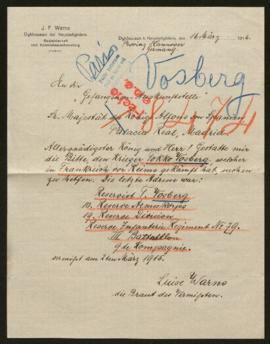 J. F. Warns
Dykhausen bei Neustadtgödens
Dykhausen bei Neustadtgödens, 16 März 1916.
Provinz Hannover
Germany
Paris
Vosberg
An die
Gefangenen Auskunftstelle
Sr. Majestät des Königs Alfons von Spanien
Palacio Real, Madrid
Allergnädigster König und Herr! Gestatte mir
die Bitte, den Krieger Tokko Vosberg, welcher
in Frankreich vor Reims gekämpft hat, suchen
zu helfen. Die letzte Adresse war:
Reservist T. Vosberg
10. Reserve Armeekorps
19. Reserve Division
Reserve Infanterie Regiment No 79.
III Bataillon
9te Kompagnie.
vermisst am 2ten März 1916.
Luise Warns
die Braut des Vermissten.